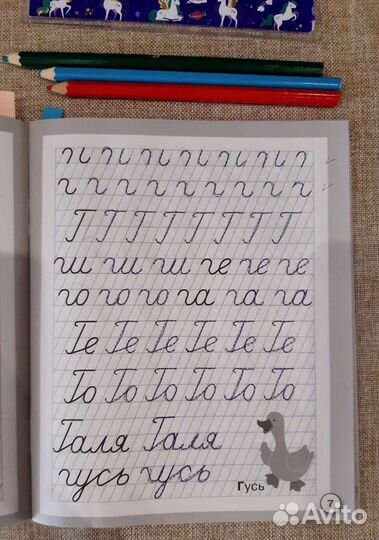 г г г г г г г
Г Г Г Г Г Г Г
ги ги ги ге ге ге
го го го га га га
Ге Ге Ге Ге Ге Ге
Го Го Го Го Го Го
Галя Галя
гусь гусь
Гусь
7
Avito